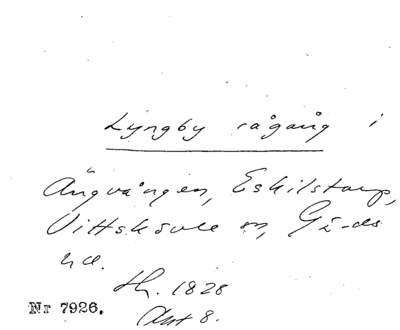 Lyngby rågång i
Ängvången, Eskilstorp,
Vittskövle sn, Gärds
hd.
Hh. 1828
Akt 8.
Nr 7926.